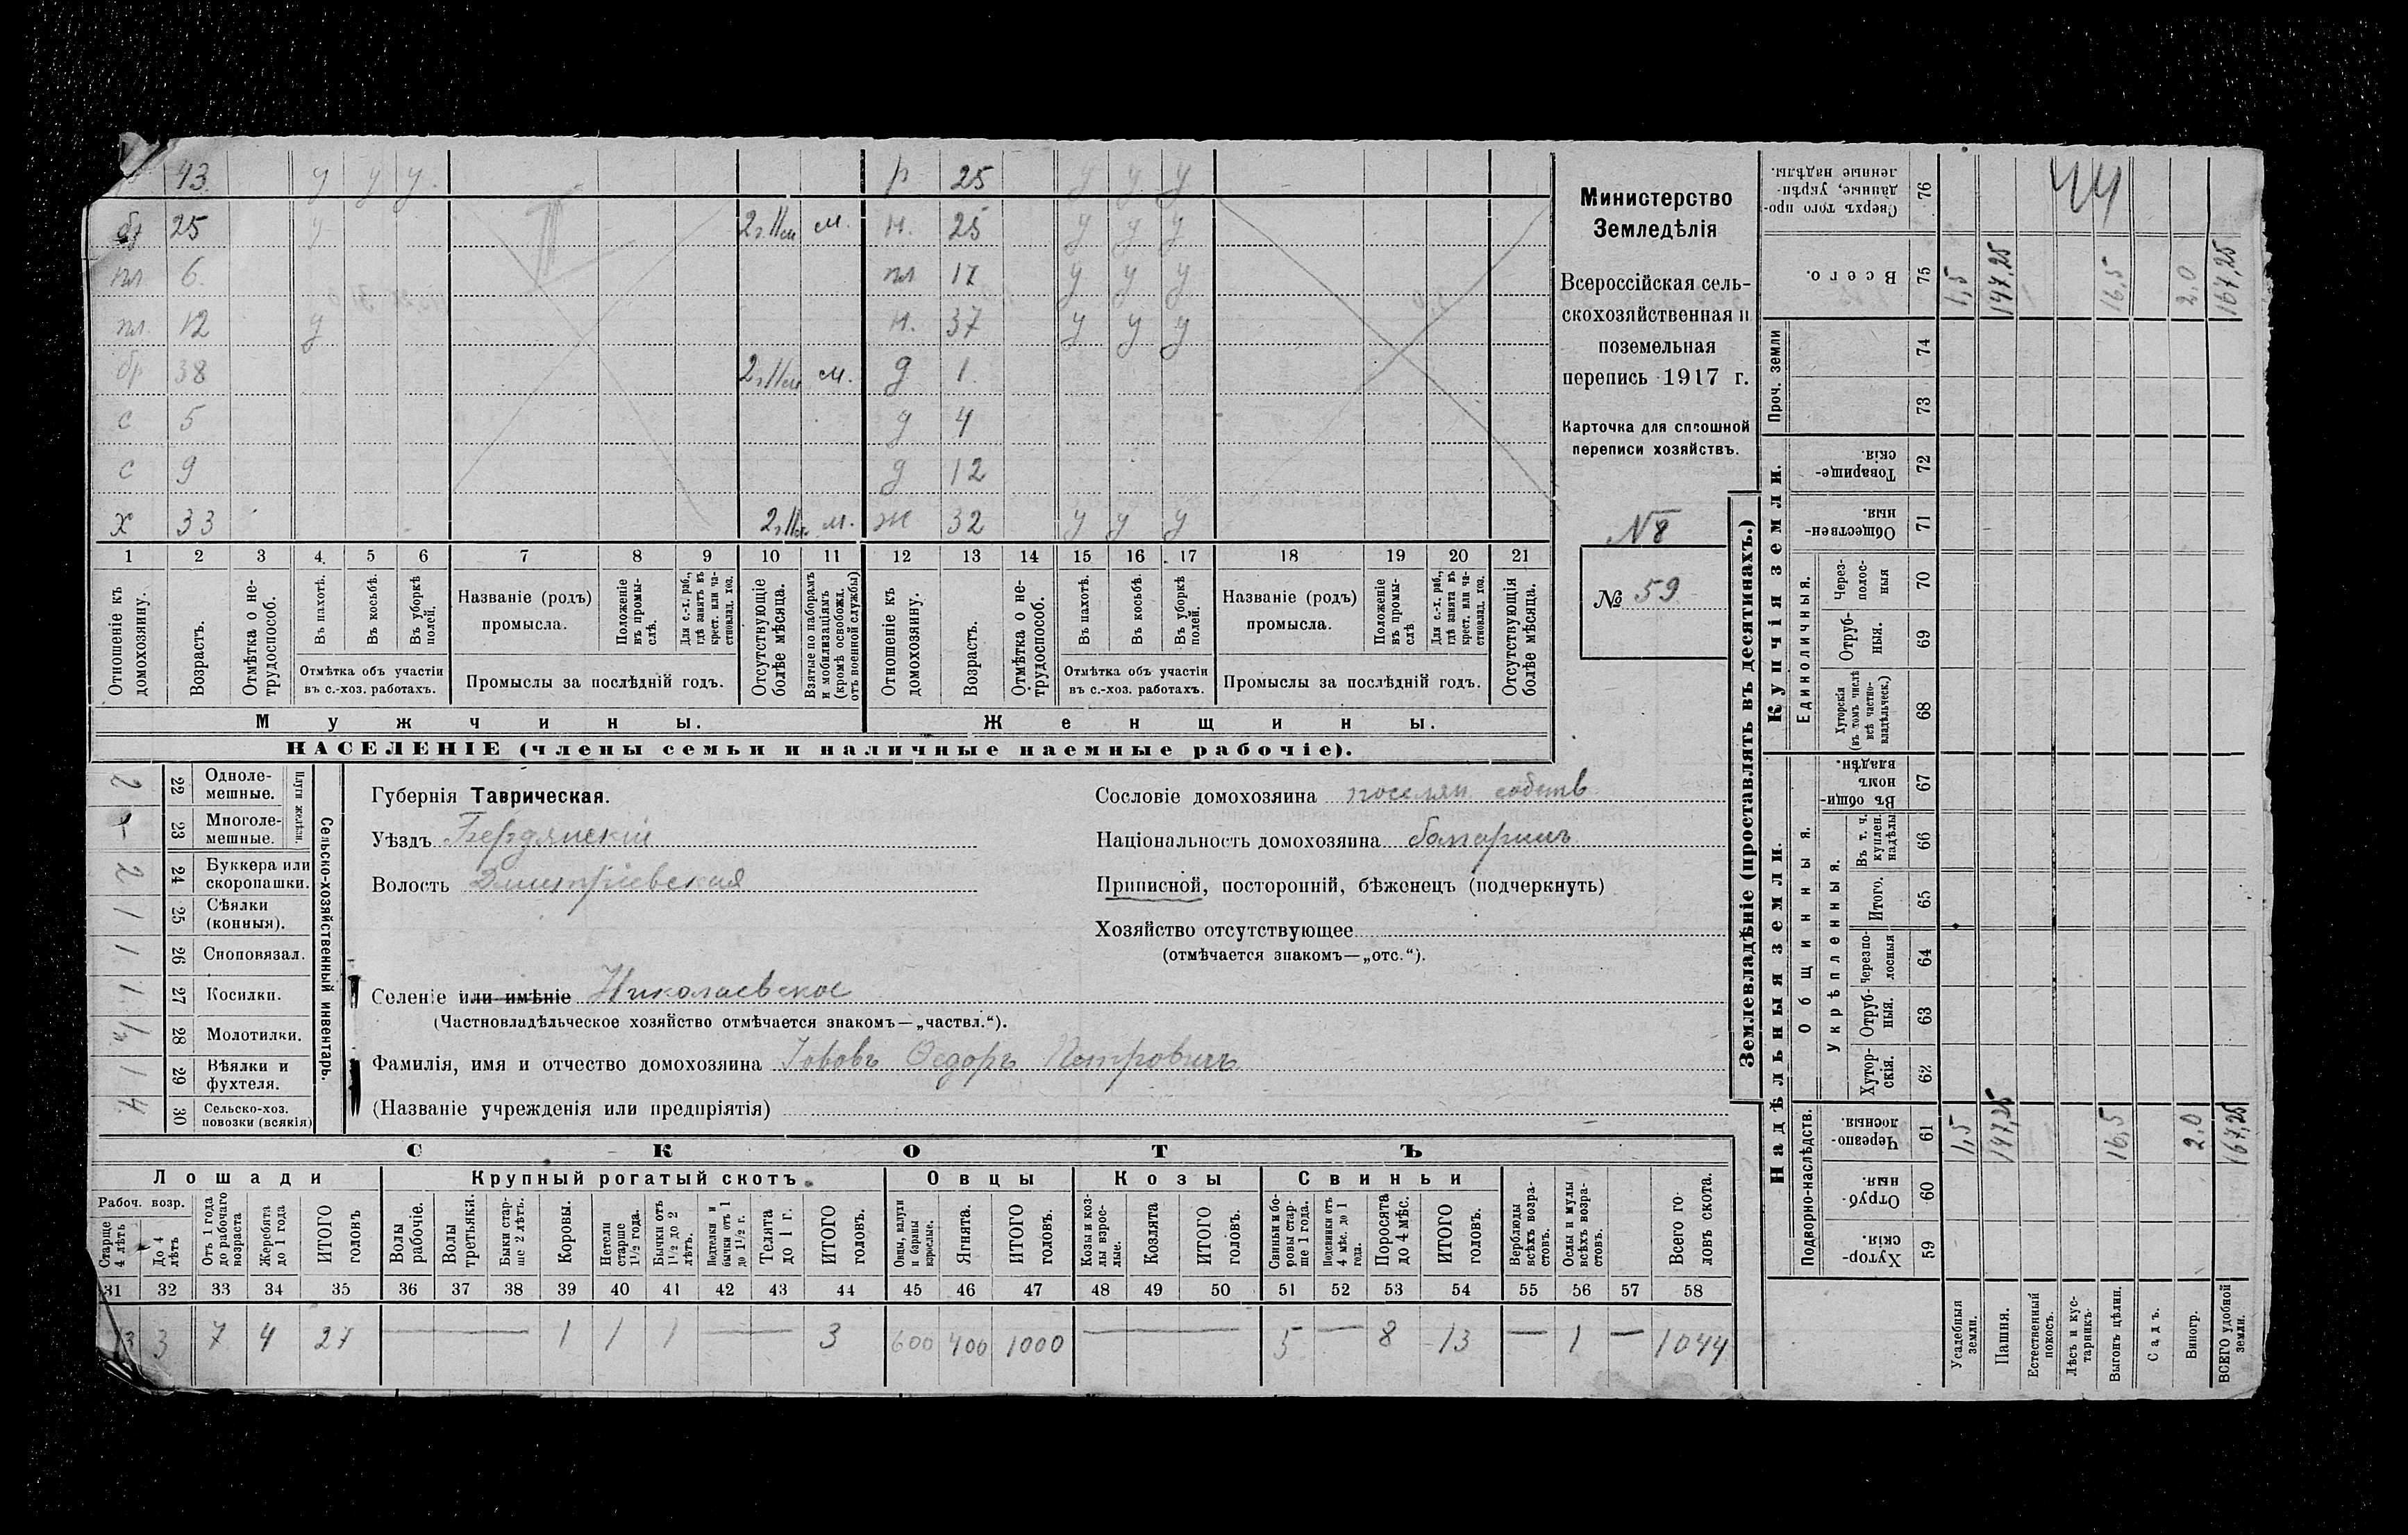 43 у у у р 25 у у у
бр 25 у 2г.11м м. н. 25 у у у
пл 6. пл 17 у у у
пл 12 у н. 37 у у у
бр 38 2г.11м м. д 1
с 5 д 4
с 9 д 12
х 33 2г.11м. м. ж 32 у у у
1 2 3 4 5 6 7 8 9 10 11 12 13 14 15 16 17 18 19 20 21
Отношеніе къ домохозяину.
Возрастъ.
Отмѣтка о нетрудоспособ.
Въ пахотѣ.
Въ косьбѣ.
Въ уборкѣ полей.
Отмѣтка объ участіи
въ с.-хоз. работахъ.
Названіе (родъ)
промысла.
Положеніе въ промыслѣ.
Для с.-х. раб., гдѣ занятъ въ крест. или частновлад. хоз.
Промыслы за послѣдній годъ.
Отсутствующіе болѣе мѣсяца.
Взятые по наборамъ и мобилизаціямъ (кромѣ освобожд. отъ военной службы)
Отношеніе къ домохозяину.
Возрастъ.
Отмѣтка о нетрудоспособ.
Въ пахотѣ.
Въ косьбѣ.
Въ уборкѣ полей.
Отмѣтка объ участіи
въ с.-хоз. работахъ.
Названіе (родъ)
промысла.
Положеніе въ промыслѣ
Для с.-х. раб., гдѣ занята въ крест. или частновлад. хоз.
Промыслы за послѣдній годъ.
Отсутствующія болѣе мѣсяца.
Мужчины. Женщины.
НАСЕЛЕНІЕ (члены семьи и наличные наемные рабочіе).
Министерство
Земледѣлія
Всероссійская сель-
скохозяйственная и
поземельная
перепись 1917 г.
Карточка для сплошной
переписи хозяйствъ.
№8
№ 59
Сельско-хозяйственный инвентарь.
Плуги желѣзн.
2 22 Одноле-
мешные.
23 Многоле-
мешные.
2 24 Буккера или
скоропашки.
1 25 Сѣялки
(конныя).
1 26 Сноповязал.
1 27 Косилки.
28 Молотилки.
1 29 Вѣялки и
фухтеля.
4 30 Сельско-хоз.
повозки (всякія)
Губернія Таврическая.
Уѣздъ Бердянскій
Волость Дмитріевская
Сословіе домохозяина поселян собств
Національность домохозяина болгаринъ
Приписной, посторонній, бѣженецъ (подчеркнуть)
Хозяйство отсутствующее
(отмѣчается знакомъ—„отс.“).
Селеніе или имѣніе Николаевское
(Частновладѣльческое хозяйство отмѣчается знакомъ—„частвл.“).
Фамилія, имя и отчество домохозяина Іововъ Ѳедоръ Петровичъ
(Названіе учрежденія или предпріятія)
СКОТЪ
Лошади Крупный рогатый скотъ. Овцы Козы Свиньи
Рабоч. возр.
Старше 4 лѣтъ
До 4 лѣтъ
Отъ 1 года до рабочаго возраста
Жеребята до 1 года
ИТОГО головъ
Волы рабочіе.
Волы третьяки.
Быки старше 2 лѣтъ.
Коровы.
Нетели старше 1½ года.
Бычки отъ 1½ до 2 лѣтъ.
Подтелки и бычки отъ 1 до 1½ г.
Телята до 1 г.
ИТОГО головъ.
Овцы, валухи и бараны взрослые.
Ягнята.
ИТОГО головъ.
Козы и козлы взрослые.
Козлята
ИТОГО головъ.
Свиньи и боровы старше 1 года.
Подсвинки отъ 4 мѣс. до 1 года.
Поросята до 4 мѣс.
ИТОГО головъ.
Верблюды всѣхъ возрастовъ.
Ослы и мулы всѣхъ возрастовъ.
Всего головъ скота.
31 32 33 34 35 36 37 38 39 40 41 42 43 44 45 46 47 48 49 50 51 52 53 54 55 56 57 58
13 3 7 4 27 — 1 1 1 — 3 600 400 1000 — 5 — 8 13 — 1 — 1044
Землевладѣніе (проставлять въ десятинахъ.)
44
Сверхъ того проданные, укрѣпленные надѣлы. 76
Всего. 75 1,5 147,25 16,5 2,0 167,25
Проч. земли 74
73
Купчія земли.
Товарищескія. 72
Общественныя. 71
Единоличныя.
Черезполосныя 70
Отрубныя. 69
Хуторскія (въ томъ числѣ всѣ частновладѣльческ.) 68
Надѣльныя земли.
Общинныя.
Въ общиномъ владѣн. 67
Укрѣпленныя.
Въ т. ч. куплен. надѣлы 66
Итого. 65
Черезполосныя 64
Отрубныя. 63
Хуторскія. 62
Подворно-наслѣдств.
Черезполосныя. 61 1,5 147,25 16,5 2,0 167,25
Отрубныя. 60
Хуторскія. 59
Усадебныя земли.
Пашня.
Естественный покосъ.
Лѣсъ и кустарникъ.
Выгонъ цѣлин.
Садъ.
Виногр.
ВСЕГО удобной земли.